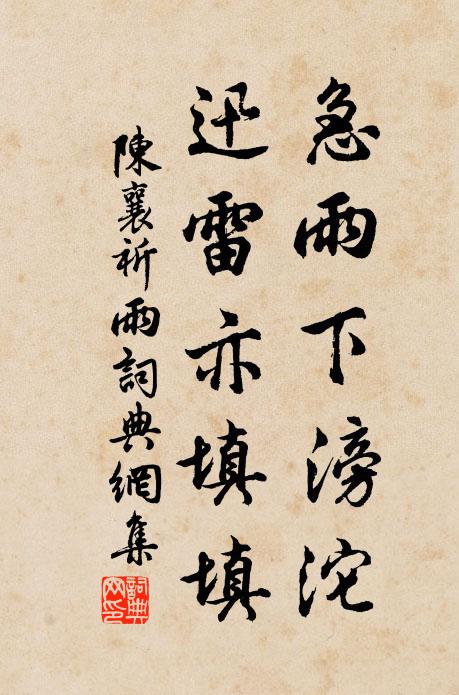 急雨下滂沱
迅雷亦填填
陳襄祈雨詞典網集
詞典網印